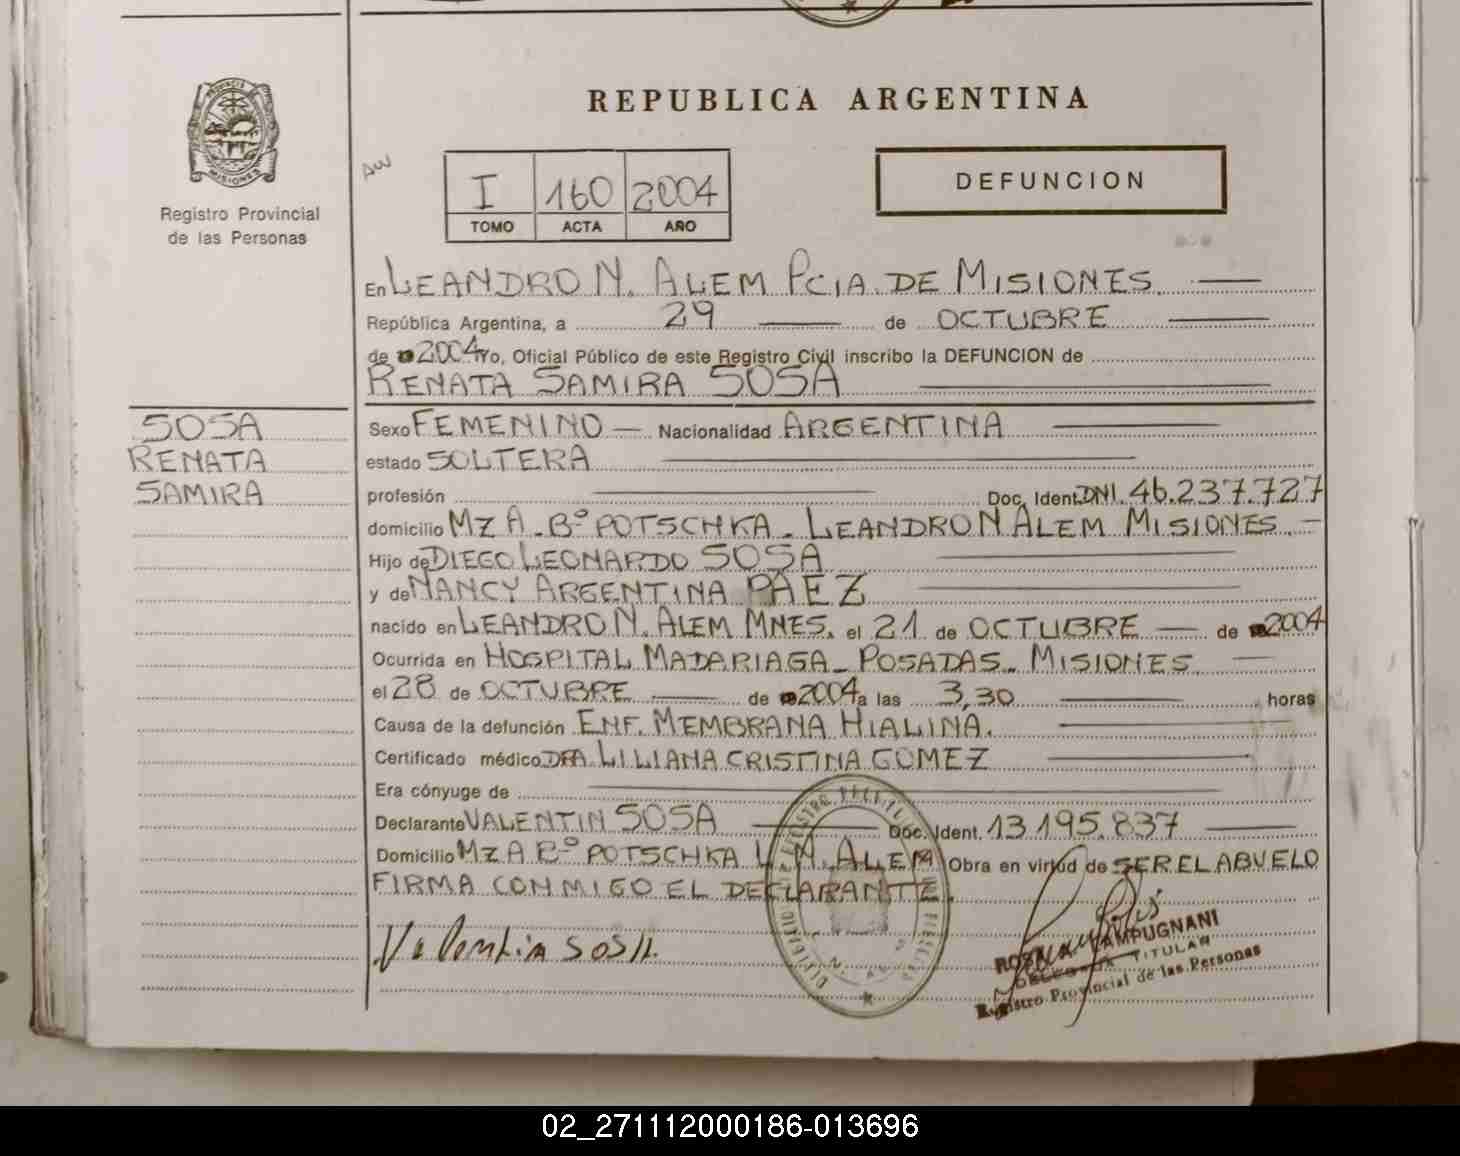 REPUBLICA ARGENTINA
Registro Provincial
de las Personas
AW
I 160 2004
TOMO ACTA AÑO
DEFUNCION
En LEANDRO N. ALEM PCIA. DE MISIONES.
República Argentina, a 29 de OCTUBRE
de 2004 Yo, Oficial Público de este Registro Civil inscribo la DEFUNCION de
RENATA SAMIRA SOSA
SOSA
RENATA
SAMIRA
Sexo FEMENINO — Nacionalidad ARGENTINA
estado SOLTERA
profesión Doc. Ident. DNI. 46.237.727
domicilio MZ A - Bº POTSCHKA - LEANDRO N ALEM MISIONES. -
Hijo de DIEGO LEONARDO SOSA
y de NANCY ARGENTINA PAEZ
nacido en LEANDRO N. ALEM MNES. el 21 de OCTUBRE — de 2004
Ocurrida en HOSPITAL MADARIAGA - POSADAS - MISIONES
el 28 de OCTUBRE de 2004 a las 3,30 horas
Causa de la defunción ENF. MEMBRANA HIALINA.
Certificado médico DRA. LILIANA CRISTINA GOMEZ
Era cónyuge de
Declarante VALENTIN SOSA Doc. Ident. 13.195.837
Domicilio MZ A Bº POTSCHKA L. N. ALEM Obra en virtud de SER EL ABUELO
FIRMA CONMIGO EL DECLARANTE.
Valentin SOSA.
ROSA LAMPUGNANI
DELEGADA TITULAR
Registro Provincial de las Personas
02_271112000186-013696